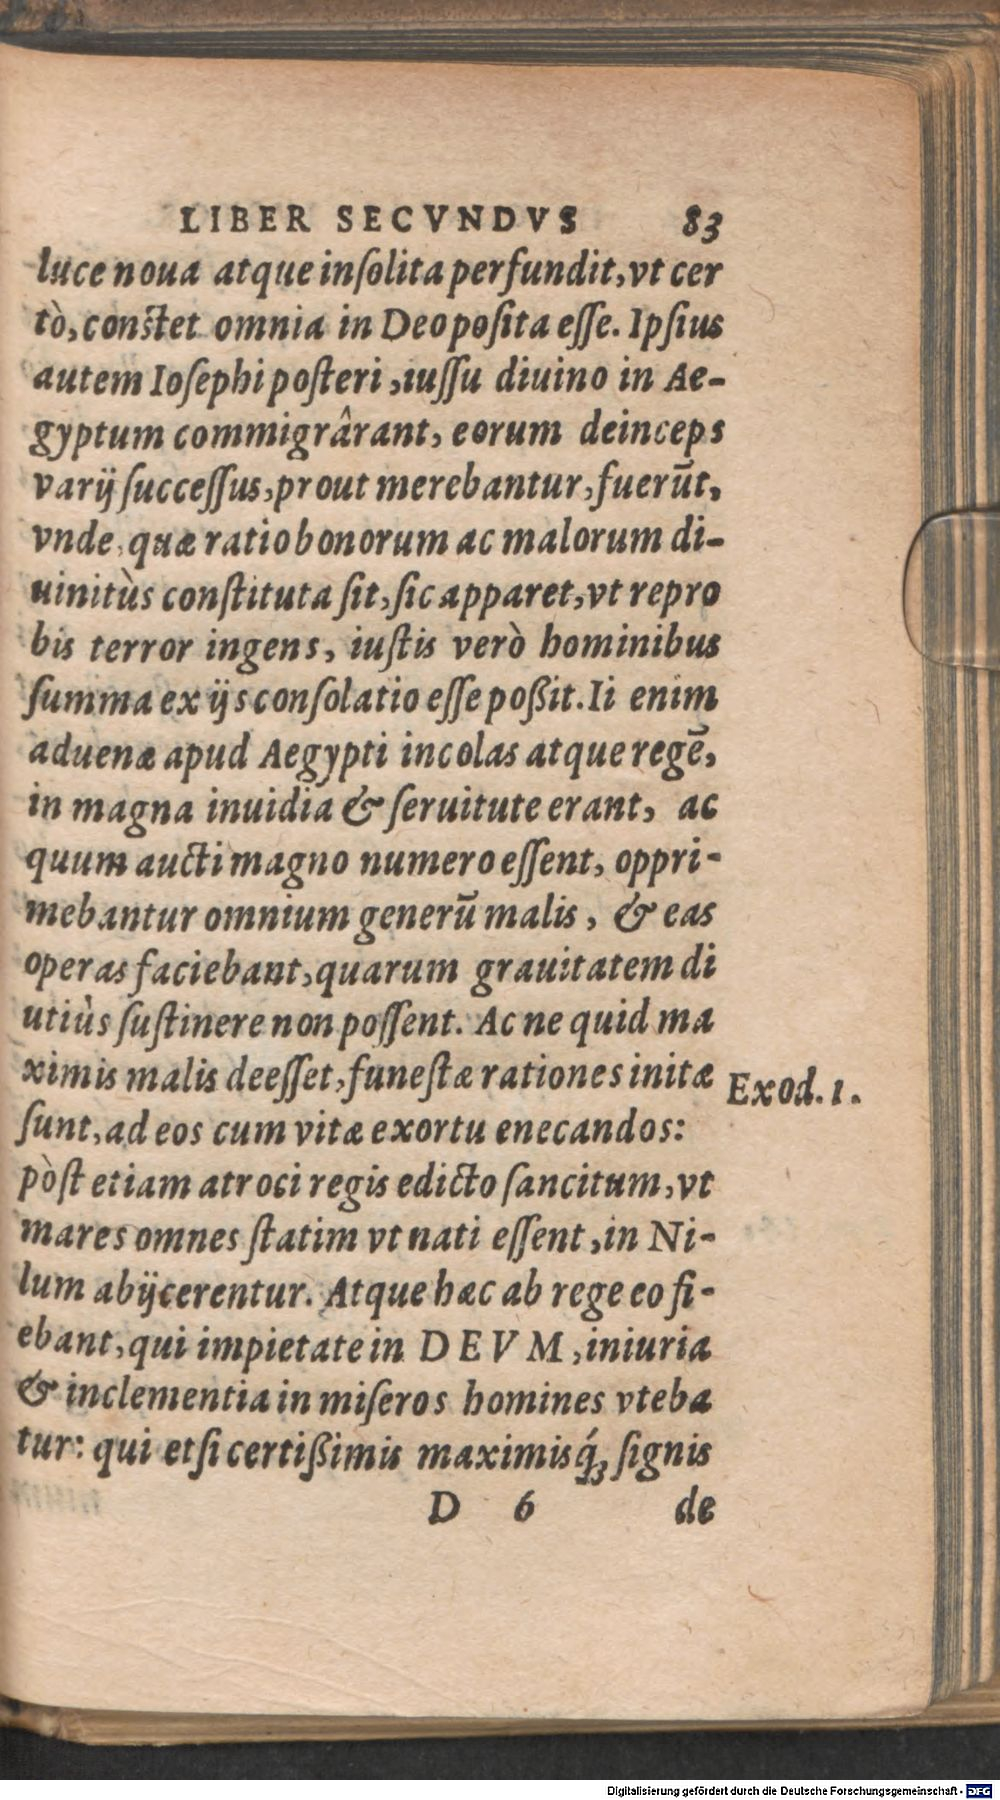 LIBER SECVNDVS 83
luce noua atque inſolita perfundit, vt cer
tò, conſtet omnia in Deo poſita eſſe. Ipſius
autem Ioſephi poſteri, iuſſu diuino in Ae-
gyptum commigrârant, eorum deinceps
varij ſucceſſus, prout merebantur, fuerũt,
vnde, quæ ratio bonorum ac malorum di-
uinitùs conſtituta ſit, ſic apparet, vt repro
bis terror ingens, iuſtis verò hominibus
ſumma ex ijs conſolatio eſſe poßit. Ii enim
aduenæ apud Aegypti incolas atque regẽ,
in magna inuidia & ſeruitute erant, ac
quum aucti magno numero eſſent, oppri-
mebantur omnium generũ malis, & eas
operas faciebant, quarum grauitatem di
utiùs ſuſtinere non poſſent. Ac ne quid ma
ximis malis deeſſet, funeſtæ rationes initæ
Exod. 1.
ſunt, ad eos cum vitæ exortu enecandos:
pòſt etiam atroci regis edicto ſancitum, vt
mares omnes ſtatim vt nati eſſent, in Ni-
lum abijcerentur. Atque hæc ab rege eo fi-
ebant, qui impietate in DEVM, iniuria
& inclementia in miſeros homines vteba
tur: qui etſi certißimis maximisq́ꝫ ſignis
D 6 de
Digitalisierung gefördert durch die Deutsche Forschungsgemeinschaft - DFG